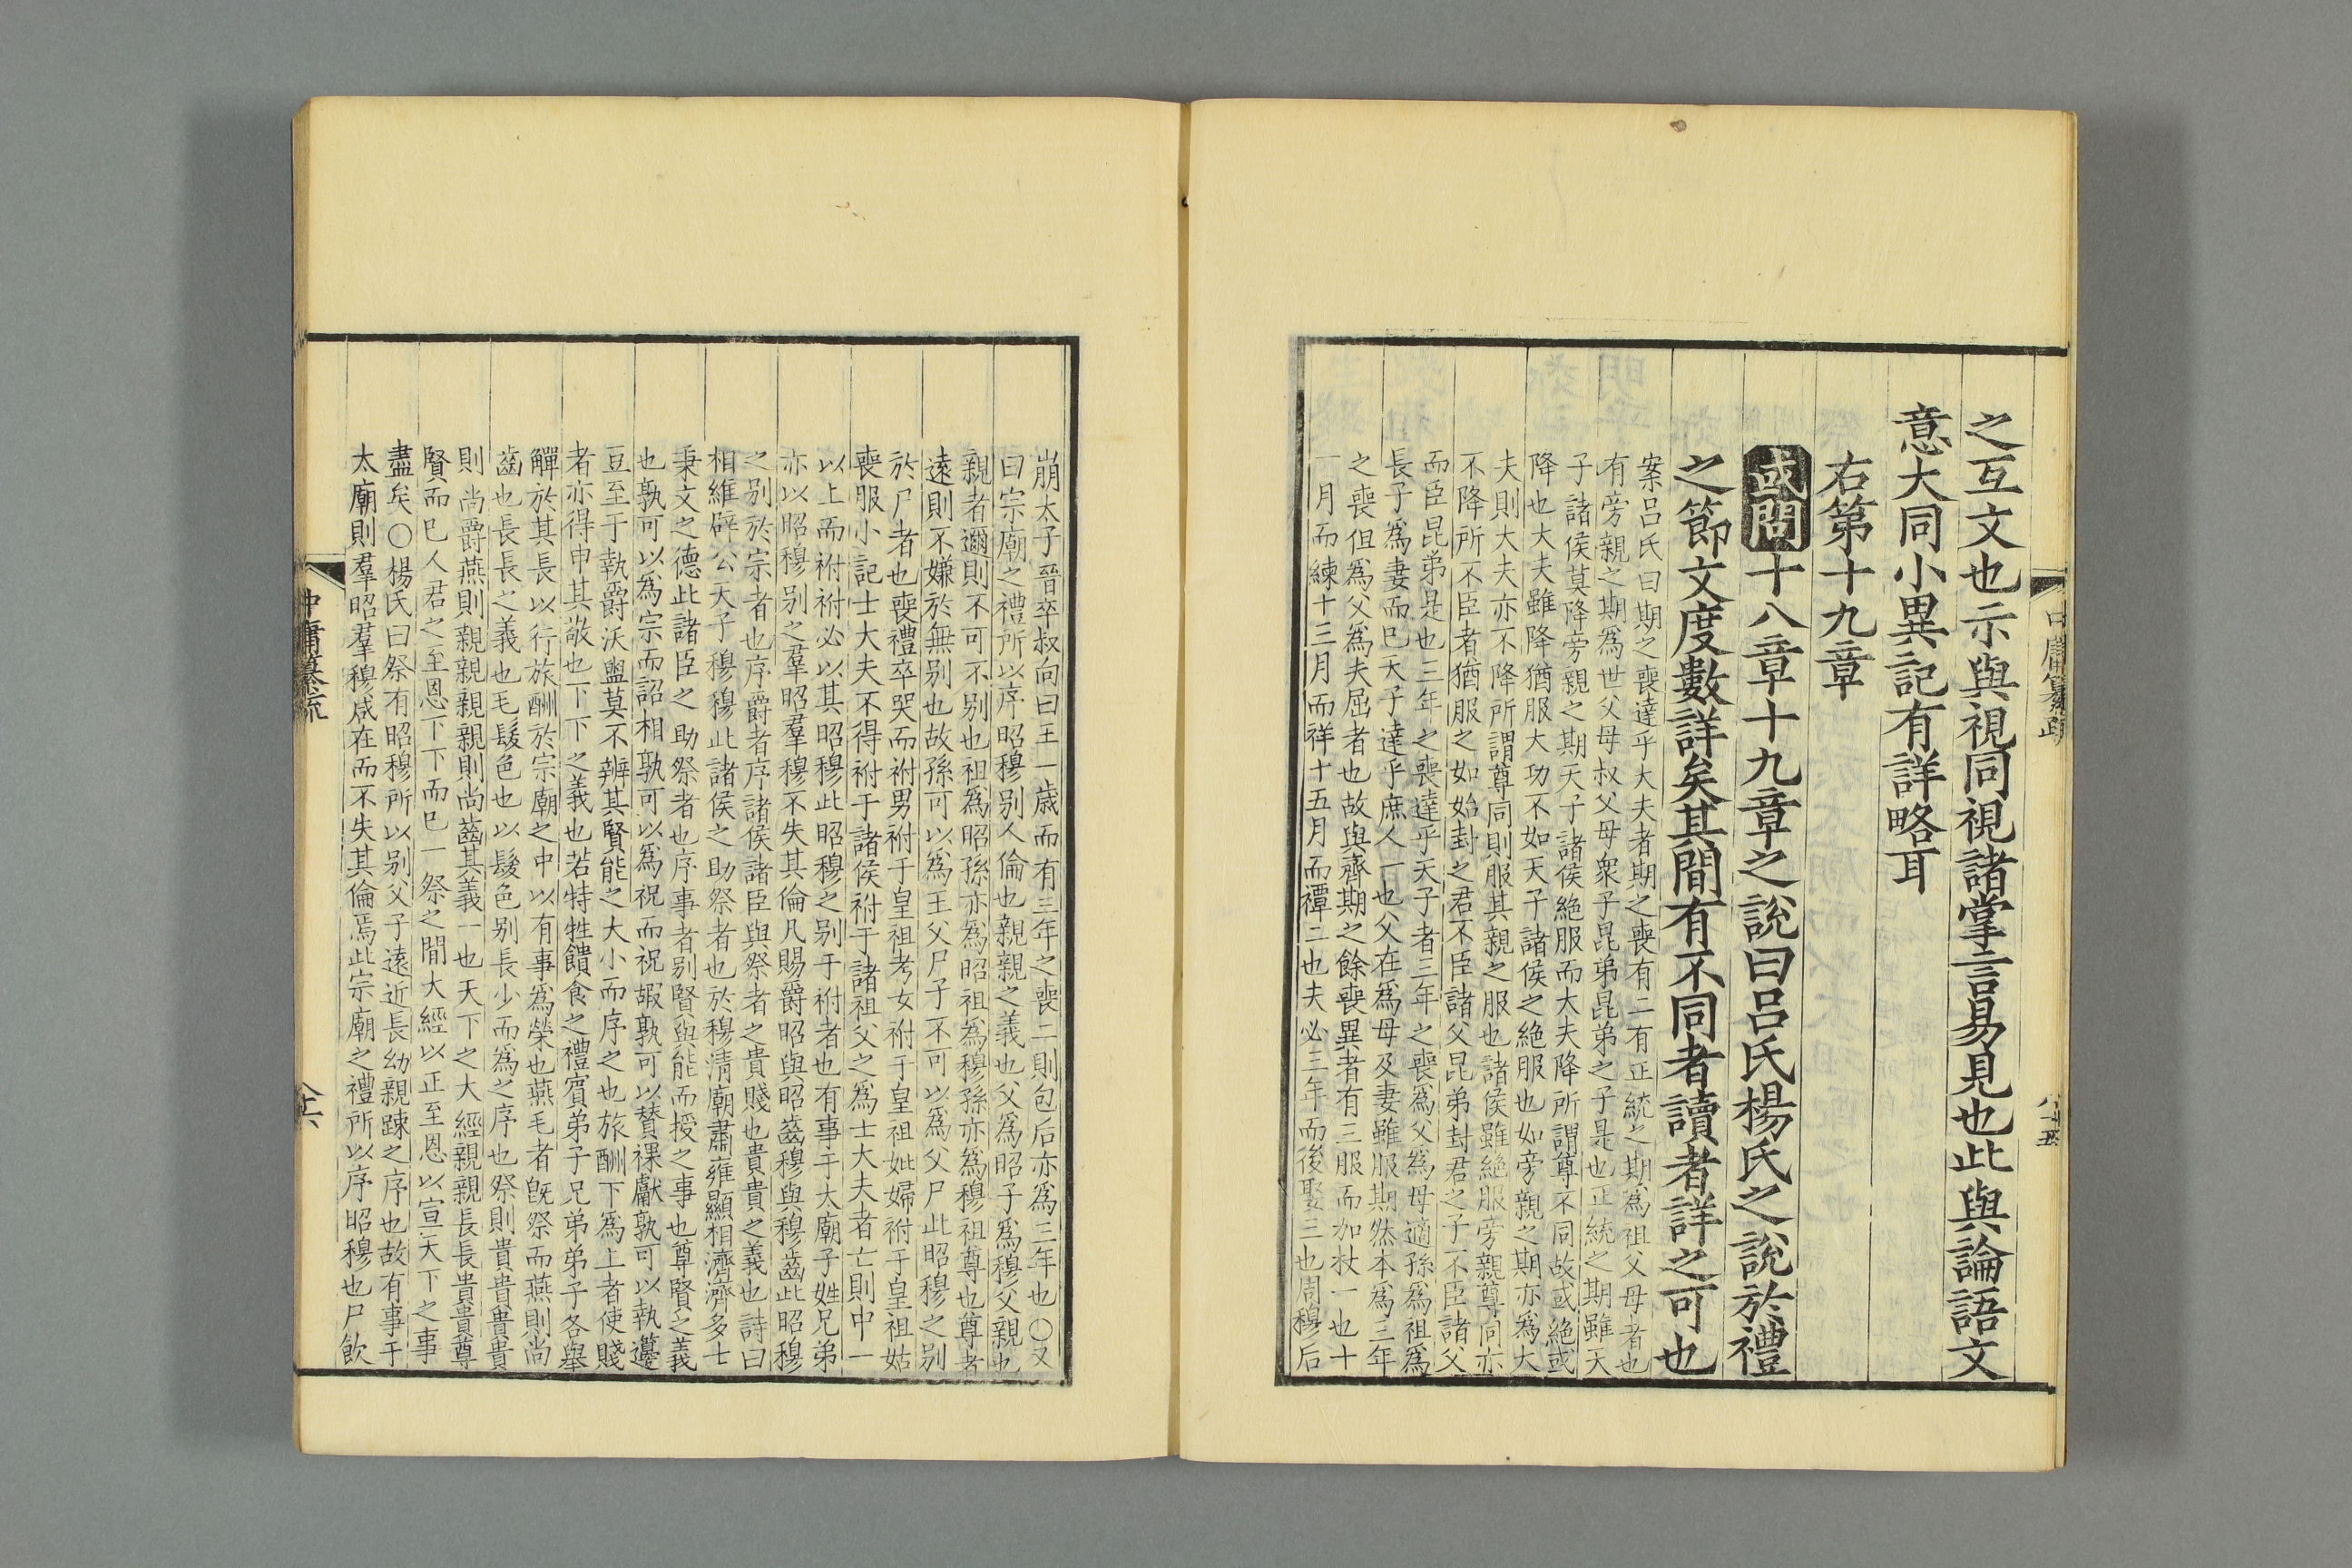 中庸纂疏
八十五
之互文也示與視同視諸掌言易見也此與論語文
意大同小異記有詳略耳
右第十九章
或問十八章十九章之說曰呂氏楊氏之說於禮
之節文度數詳矣其間有不同者讀者詳之可也
案呂氏曰期之喪達乎大夫者期之喪有二有正統之期為祖父母者也
有旁親之期為世父母叔父母衆子昆弟昆弟之子是也正統之期雖天
子諸侯莫降旁親之期天子諸侯絶服而大夫降所謂尊不同故或絶或
降也大夫雖降猶服大功不如天子諸侯之絶服也如旁親之期亦為大
夫則大夫亦不降所謂尊同則服其親之服也諸侯雖絶服旁親尊同亦
不降所不臣者猶服之如始封之君不臣諸父昆弟封君之子不臣諸父
而臣昆弟是也三年之喪達乎天子者三年之喪為父為母適孫為祖為
長子為妻而已天子達乎庶人一也父在為母及妻雖服期然本為三年
之喪但為父為夫屈者也故與齊期之餘喪異者有三服而加杖一也十
一月而練十三月而祥十五月而禫二也夫必三年而後娶三也周穆后
崩太子晉卒叔向曰王一歲而有三年之喪二則包后亦為三年也○又
曰宗廟之禮所以序昭穆别人倫也親親之義也父為昭子為穆父親也
親者邇則不可不别也祖為昭孫亦為昭祖為穆孫亦為穆祖尊也尊者
遠則不嫌於無别也故孫可以為王父尸子不可以為父尸此昭穆之别
於尸者也喪禮卒哭而祔男祔于皇祖考女祔于皇祖妣婦祔于皇祖姑
喪服小記士大夫不得祔于諸侯祔于諸祖父之為士大夫者亡則中一
以上而祔祔必以其昭穆此昭穆之别于祔者也有事于太廟子姓兄弟
亦以昭穆别之羣昭羣穆不失其倫凡賜爵昭與昭齒穆與穆齒此昭穆
之别於宗者也序爵者序諸侯諸臣與祭者之貴賤也貴貴之義也詩曰
相維辟公天子穆穆此諸侯之助祭者也於穆清廟肅雍顯相濟濟多士
秉文之德此諸臣之助祭者也序事者别賢與能而授之事也尊賢之義
也孰可以為宗而詔相孰可以為祝而祝嘏孰可以賛祼獻孰可以執籩
豆至于執爵沃盥莫不辨其賢能之大小而序之也旅酬下為上者使賤
者亦得申其敬也下下之義也若特牲饋食之禮賓弟子兄弟弟子各舉
觶於其長以行旅酬於宗廟之中以有事為榮也燕毛者旣祭而燕則尚
齒也長長之義也毛髮色也以髮色别長少而為之序也祭則貴貴貴貴
則尚爵燕則親親親親則尚齒其義一也天下之大經親親長長貴貴尊
賢而已人君之至恩下下而已一祭之間大經以正至恩以宣天下之事
盡矣○楊氏曰祭有昭穆所以别父子遠近長幼親踈之序也故有事于
太廟則羣昭羣穆咸在而不失其倫焉此宗廟之禮所以序昭穆也尸飲
中庸纂疏
八十六